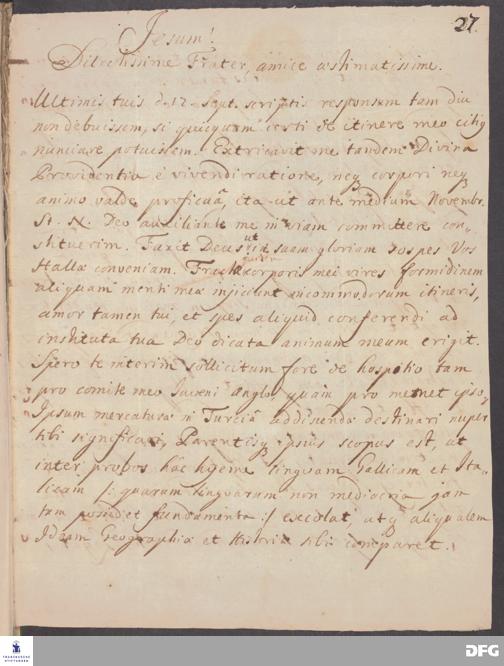 27.
Jesum!
Dilectissime Frater, amice æstimatissime.
Ultimis tuis d. 12. Sept. scriptis responsum tam diu
non debuissem, si quicquam certi de itinere meo citiq
nunciare potuissem. Extricavit me tandem Divina
Providentia è vivendi ratione, neq corpori neq
animo valde proficuâ, ita ut ante medium Novembr.
St. N. Deo auxiliante me in viam committere con-
stituerim. Faxit Deus ut in suam gloriam sospes Vos
Hallæ conveniam. Fractæ corporis mei vires formidinem
aliquam menti meæ injiciunt incommodorum itineris,
amor tamen tui, et spes aliquid conferendi ad
instituta tua Deo dicata animum meum erigit.
Spero te interim sollicitum fore de hospitio tam
pro comite meo Juveni anglo, quam pro memet ipso,
Ipsum mercaturæ in Turciâ addiscendæ destinari nuper
tibi significavi, Parentisq ipsius scopus est, ut
inter probos hâc hyeme linguam Gallicam et Ita-
licam /: quarum linguarum non mediocria jam
tum possidet fundamenta :/ excolat, utq aliqualem
Ideam Geographiæ et Historiæ sibi comparet.
FRANCKESCHE
STIFTUNGEN
DFG